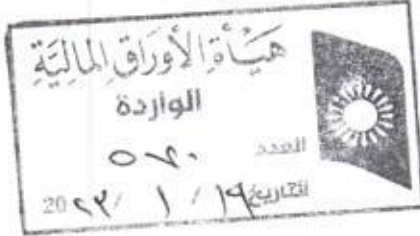 هيأة الأوراق المالية
الواردة
العدد ٥٧٠
التاريخ ١٩ / ١ / ٢٣ 20